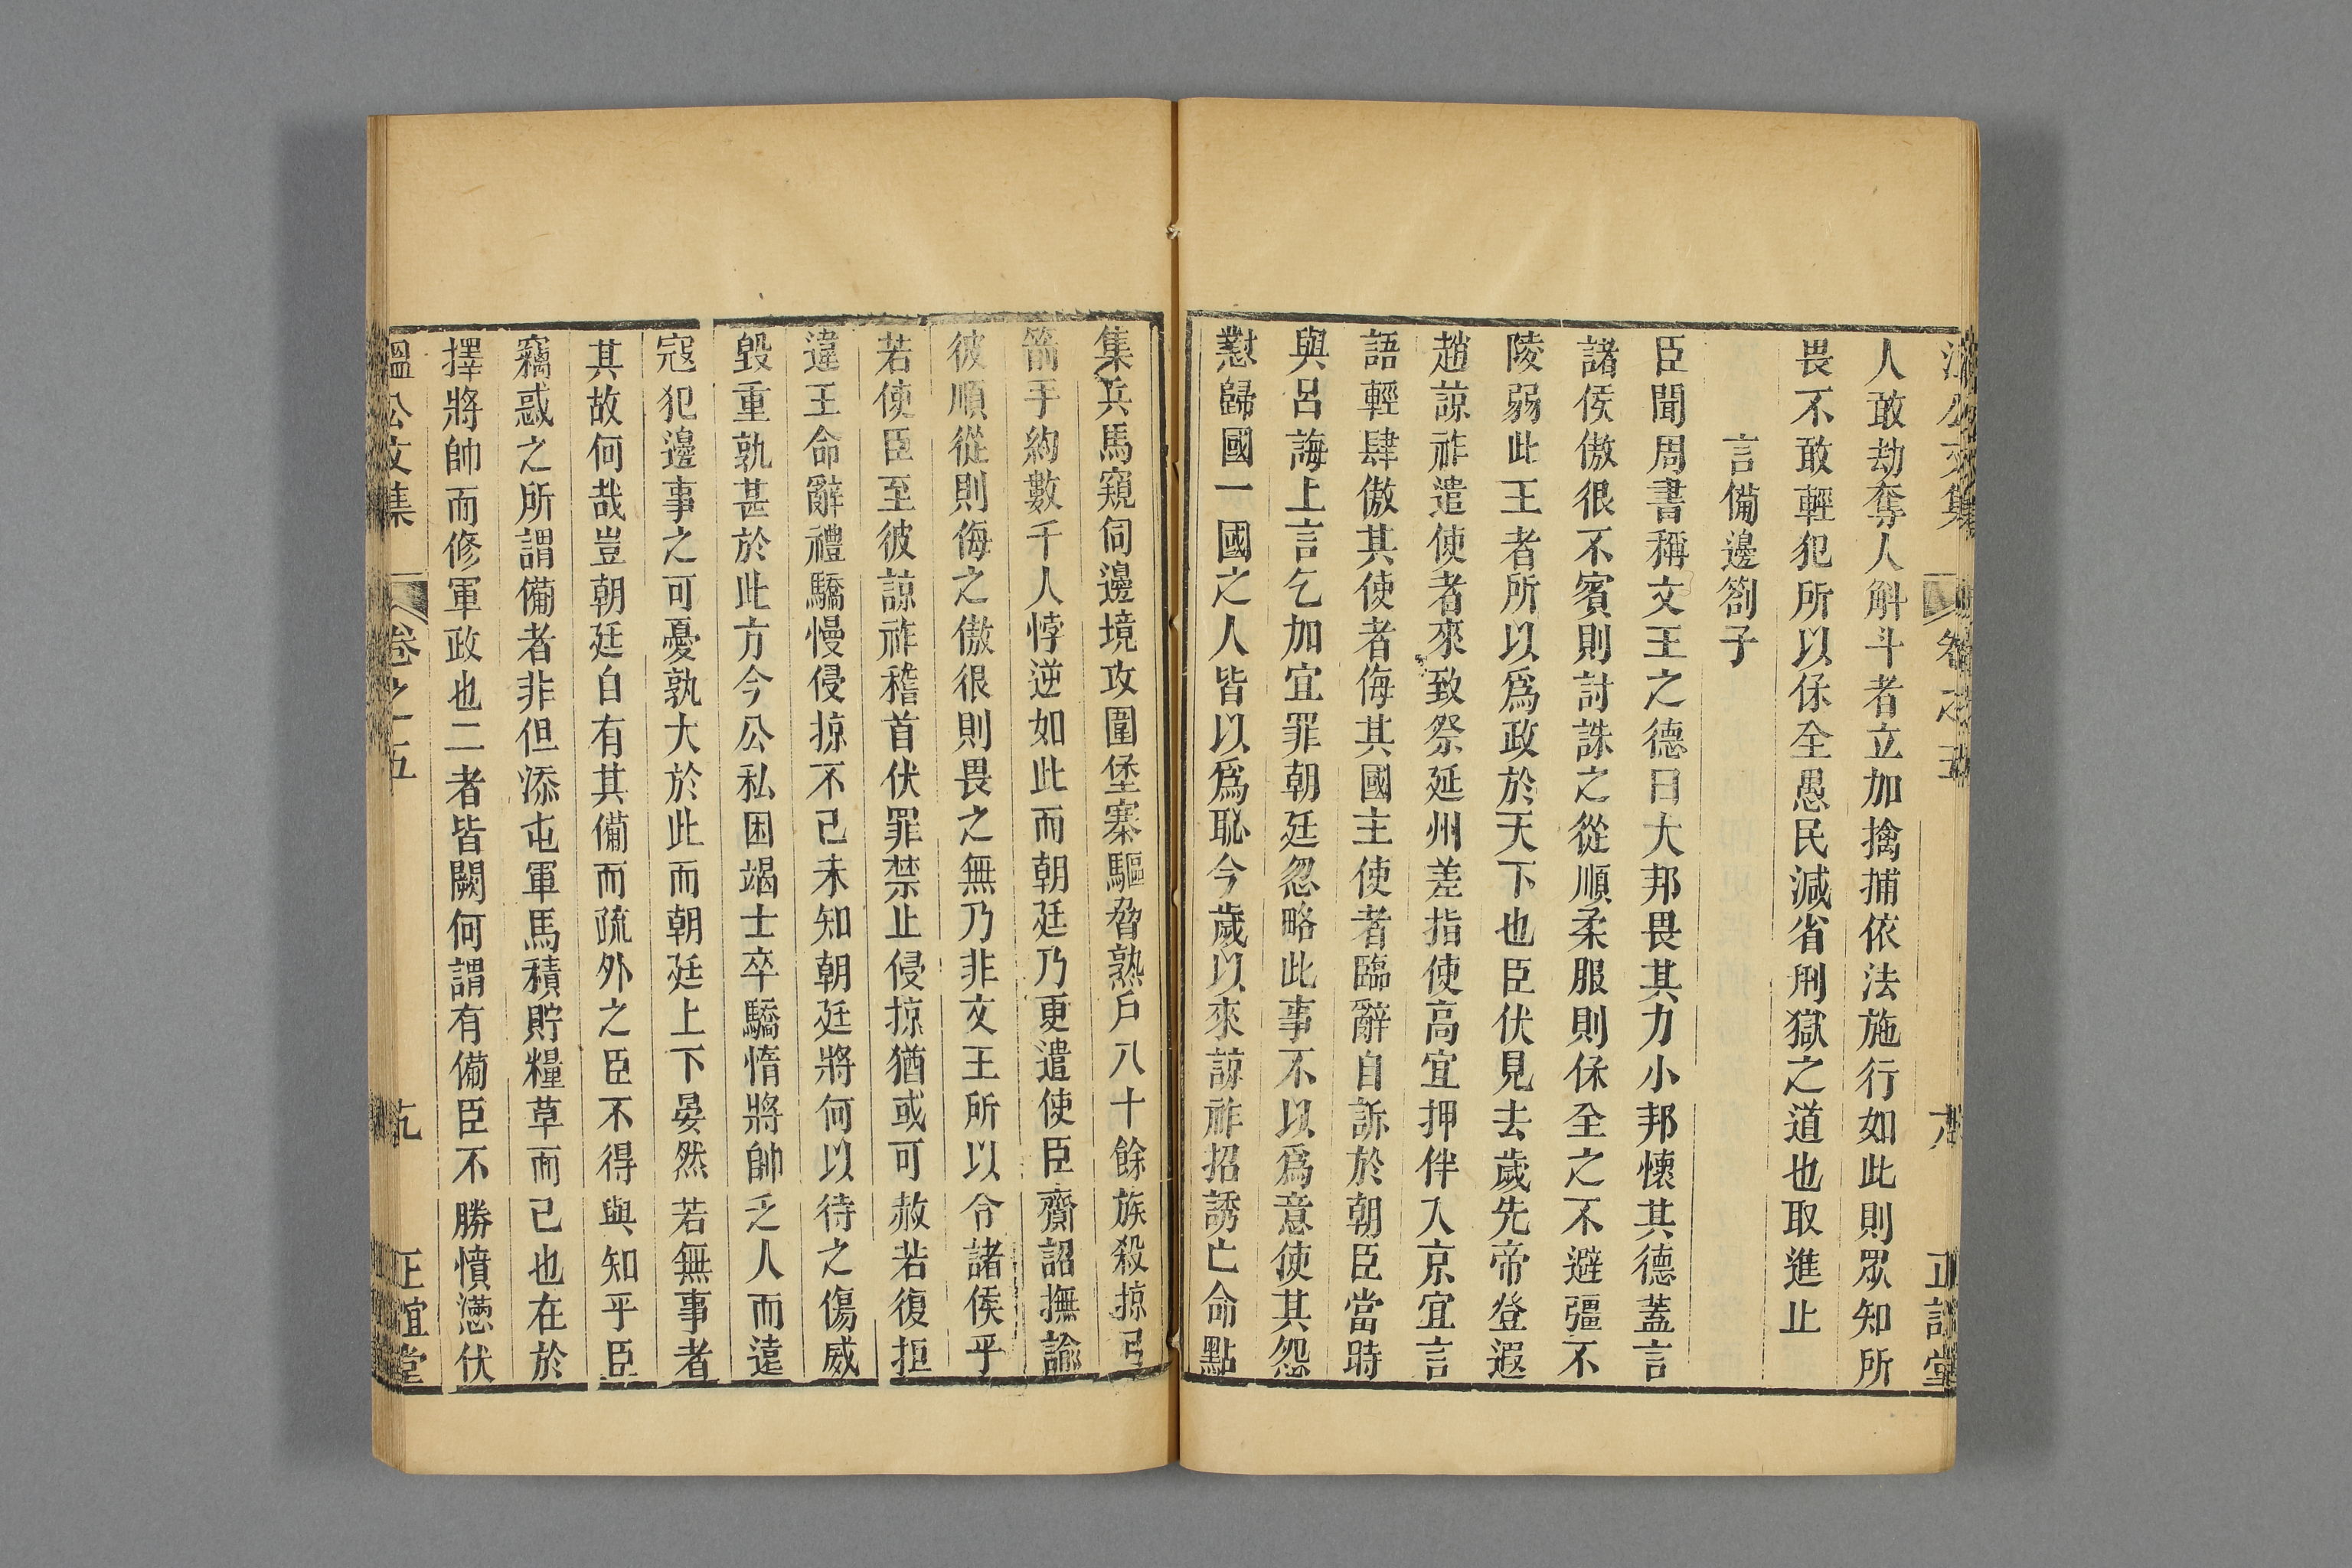 溫公文集 卷之五 八 正誼堂
人敢劫奪人斛斗者立加擒捕依法施行如此則眾知所
畏不敢輕犯所以保全愚民減省刑獄之道也取進止
言備邊劄子
臣聞周書稱文王之德曰大邦畏其力小邦懷其德蓋言
諸侯傲很不賓則討誅之從順柔服則保全之不避彊不
陵弱此王者所以爲政於天下也臣伏見去歲先帝登遐
趙諒祚遣使者來致祭延州差指使高宜押伴入京宜言
語輕肆傲其使者侮其國主使者臨辭自訴於朝臣當時
與呂誨上言乞加宜罪朝廷忽略此事不以爲意使其怨
懟歸國一國之人皆以爲恥今歲以來諒祚招誘亡命點
集兵馬窺伺邊境攻圍堡寨驅脅熟戶八十餘族殺掠弓
箭手約數千人悖逆如此而朝廷乃更遣使臣齎詔撫諭
彼順從則侮之傲很則畏之無乃非文王所以令諸侯乎
若使臣至彼諒祚稽首伏罪禁止侵掠猶或可赦若復拒
違王命辭禮驕慢侵掠不已未知朝廷將何以待之傷威
毀重孰甚於此方今公私困竭士卒驕惰將帥乏人而遠
寇犯邊事之可憂孰大於此而朝廷上下晏然若無事者
其故何哉豈朝廷自有其備而疏外之臣不得與知乎臣
竊惑之所謂備者非但添屯軍馬積貯糧草而已也在於
擇將帥而修軍政也二者皆闕何謂有備臣不勝憤懣伏
溫公文集 卷之五 九 正誼堂